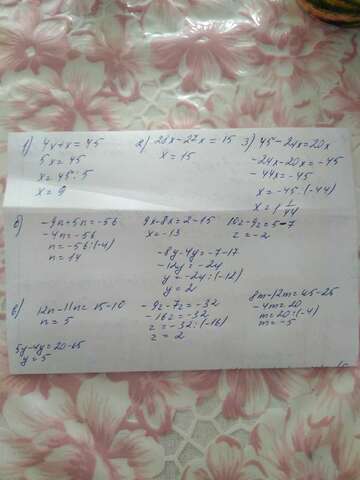 1) 4x+x=45
5x=45
x=45:5
x=9
2) 28x-27x=15
x=15
3) 45-24x=20x
-24x-20x=-45
-44x=-45
x=-45:(-44)
x=1 1/44
б) -9n+5n=-56
-4n=-56
n=-56:(-4)
n=14
9x-8x=2-15
x=-13
-8y-4y=-7-17
-12y=-24
y=-24:(-12)
y=2
10z-9z=5-7
z=-2
в) 12n-11n=15-10
n=5
5y-4y=20-65
y=5
-9z-7z=-32
-16z=-32
z=-32:(-16)
z=2
8m-12m=45-25
-4m=20
m=20:(-4)
m=-5